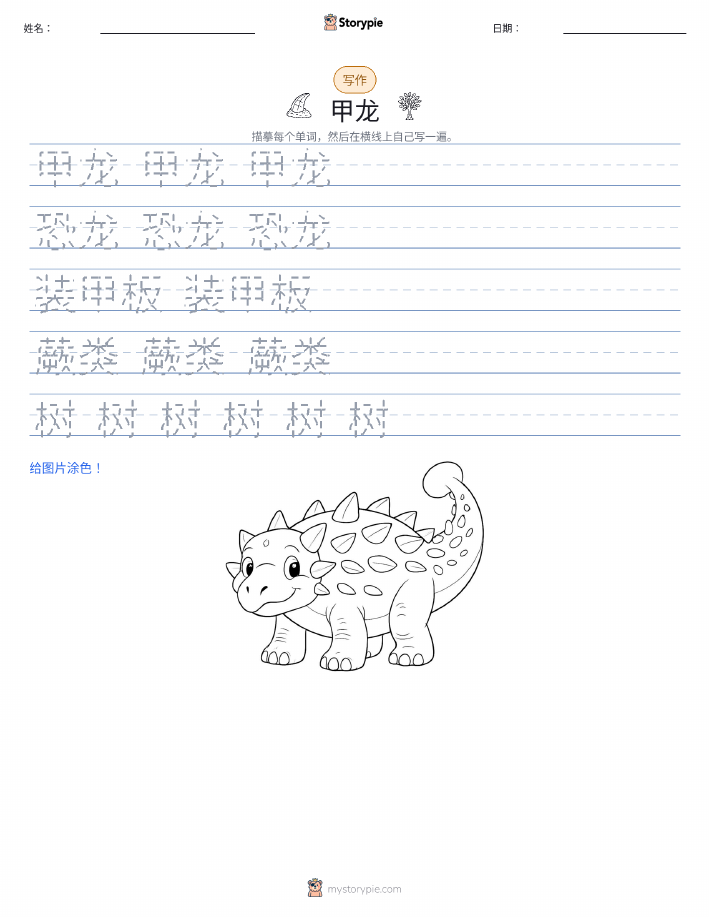 姓名：
Storypie
日期：
写作
甲龙
描摹每个单词，然后在横线上自己写一遍。
甲龙 甲龙 甲龙
恐龙 恐龙 恐龙
装甲板 装甲板
蕨类 蕨类 蕨类
树 树 树 树 树 树
给图片涂色！
mystorypie.com